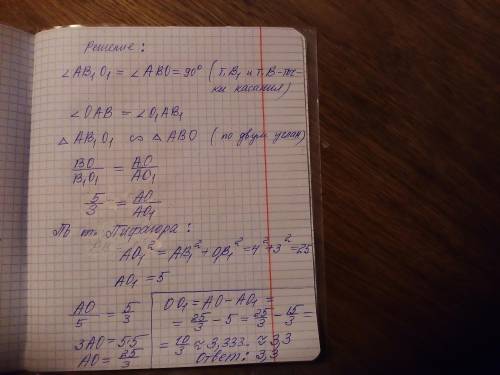 Решение:
∠AB₁O₁ = ∠ABO = 90° (т. B₁ и т. B - точ-
ки касания)
∠OAB = ∠O₁AB₁
△AB₁O₁ ∽ △ABO (по двум углам)
BO/B₁O₁ = AO/AO₁
5/3 = AO/AO₁
По т. Пифагора:
AO₁² = AB₁² + O₁B₁² = 4² + 3² = 25
AO₁ = 5
AO/5 = 5/3
3AO = 5·5
AO = 25/3
OO₁ = AO - AO₁ =
= 25/3 - 5 = 25/3 - 15/3 =
= 10/3 ≈ 3,333.. ≈ 3,3
Ответ: 3,3